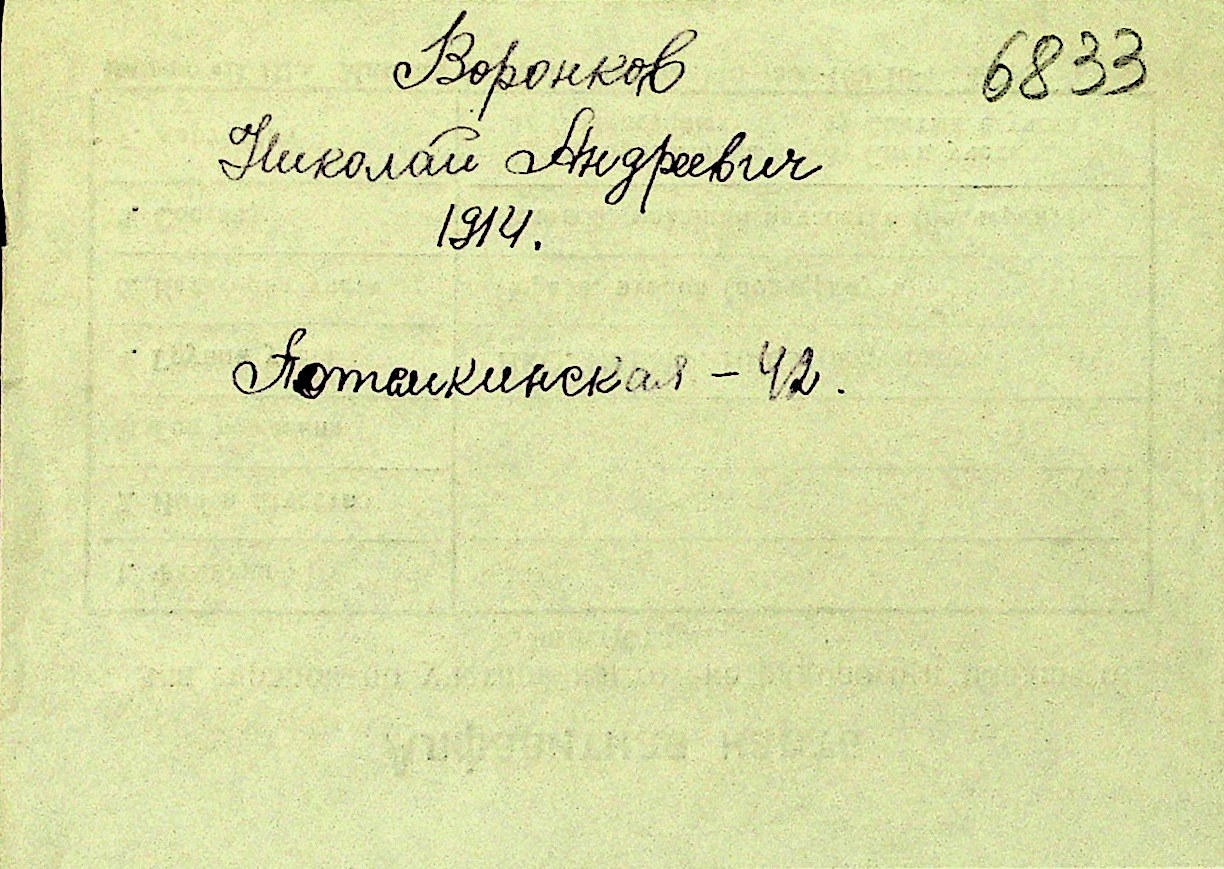 Воронков 6833
Николай Андреевич
1914.
Потемкинская - 42.